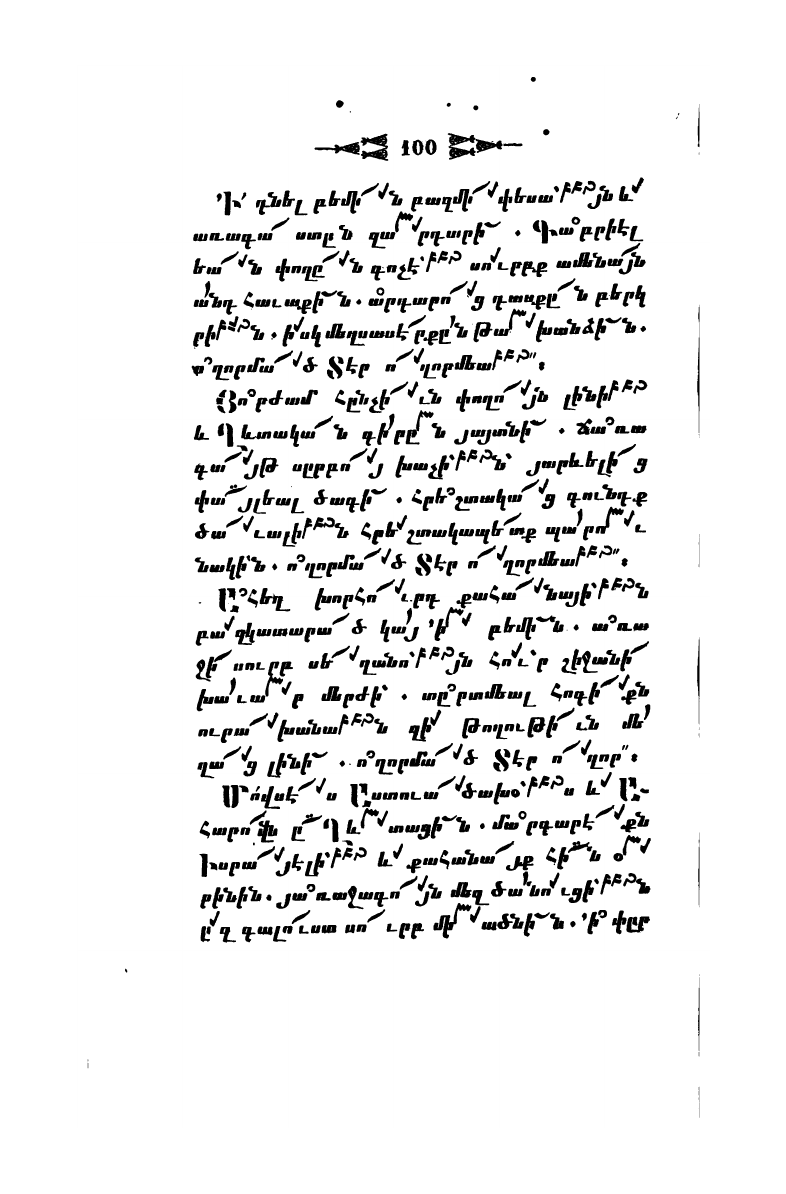 100
Ի՛ դնել բեմին բազմի փեսայն և
առագաստըն զարդարի. Գաբրիէլ
եան փողըն գոչէ՝ սուրբք ամենայն
անդ հաւաքին. արդարոց դասքըն բերկ
րին. իսկ մեղսասէրքըն թախանձին.
ողորմած Տէր ողորմեա՛՛։
Յորժամ հընչիւն փողոյն լինի
և Պետական գիրըն յայտնի. ճառա
գայթ սըրբոյ խաչի՝ն՝ յարևելից
փայլեալ ծագի. Հրեշտակաց գունդք
ծաւալին Հրեշտակապետք պարու
նակի՛ն. ողորմած Տէր ողորմեա՛՛։
Ընհեղ խորհուրդ քահանայի՝ն
բազկատարած կայ ՚ի բեմին. առա
ջի սուրբ սեղանո՝յն հուր շիջանի
խաւար մերժի. տըրտմեալ հոգիքն
ուրախանան զի թողութիւն մե
ղաց լինի. ողորմած Տէր ողոր՛՛։
Մովսէս Աստուածախօ՝ս և Ա֊
հարովն ըՊևտացին. մարգարէքն
Իսրայէլի՝ և քահանայք հին օ
րինին. յառաջագոյն մեզ ծանուցի՝ն
ըզ գալուստ սուրբ միածնին. ՚ի փըր